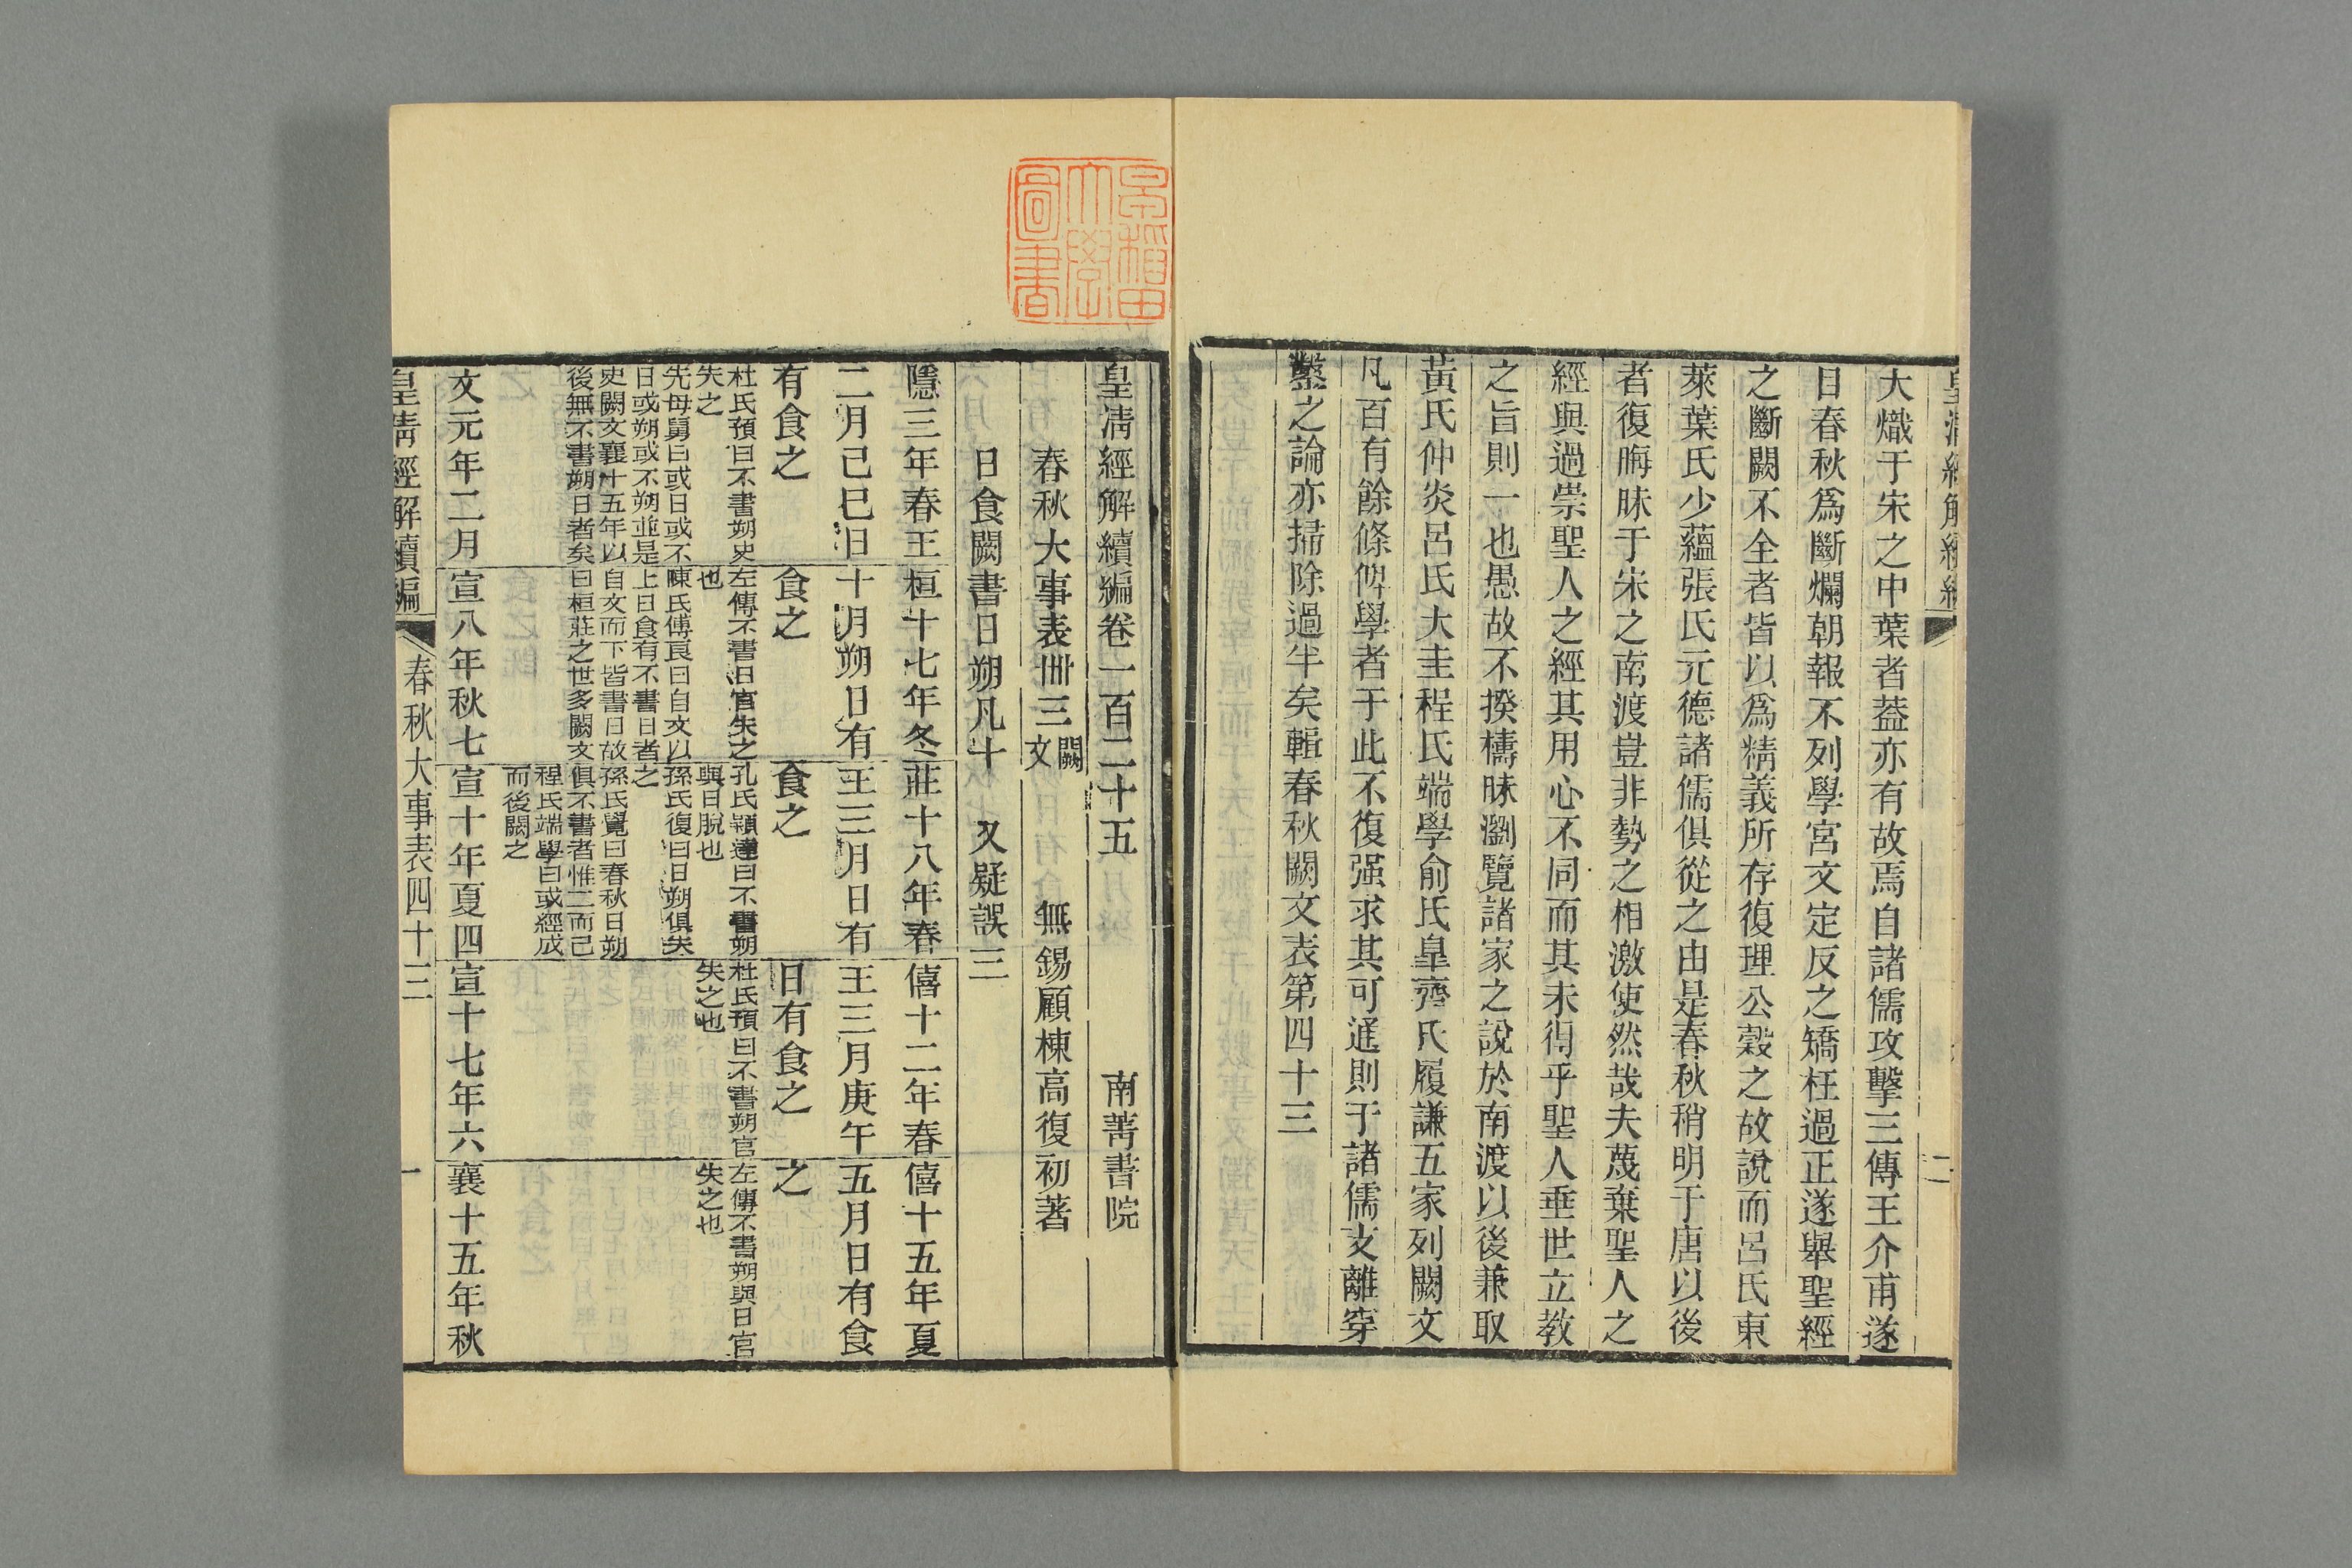 大熾于宋之中葉者葢亦有故焉自諸儒攻擊三傳王介甫遂
日春秋爲斷爛朝報不列學宮文定反之矯枉過正遂舉聖經
之斷闕不全者皆以爲精義所存復理公穀之故說而呂氏東
萊葉氏少蘊張氏元德諸儒俱從之由是春秋稍明于唐以後
者復晦昧于宋之南渡豈非勢之相激使然哉夫蔑棄聖人之
經與過崇聖人之經其用心不同而其未得乎聖人垂世立教
之旨則一也愚故不揆檮昧瀏覽諸家之說於南渡以後兼取
黃氏仲炎呂氏大圭程氏端學俞氏皐齊氏履謙五家列闕文
凡百有餘條俾學者于此不復强求其可通則于諸儒支離穿
鑿之論亦掃除過半矣輯春秋闕文表第四十三
皇清經解續編卷一百二十五 南菁書院
春秋大事表卌三闕文 無錫顧棟高復初著
日食闕書日朔凡十 又疑誤三
隱三年春王
二月己巳日
有食之
杜氏預曰不書朔史
失之
先母舅曰或日或不
日或朔或不朔並是
史闕文襄十五年以
後無不書朔日者矣
桓十七年冬
十月朔日有
食之
左傳不書日官失之
也
陳氏傅良曰自文以
上日食有不書日者
自文而下皆書日故
曰桓莊之世多闕文
莊十八年春
王三月日有
食之
孔氏穎達曰不書朔
與日脫也
孫氏復曰日朔俱失
之
孫氏覺曰春秋日朔
俱不書者惟二而己
程氏端學曰或經成
而後闕之
僖十二年春
王三月庚午
日有食之
杜氏預曰不書朔官
失之也
僖十五年夏
五月日有食
之
左傳不書朔與日官
失之也
文元年二月
宣八年秋七
宣十年夏四
宣十七年六
襄十五年秋
皇清經解續編 春秋大事表四十三 一
早稲田
大學
圖書